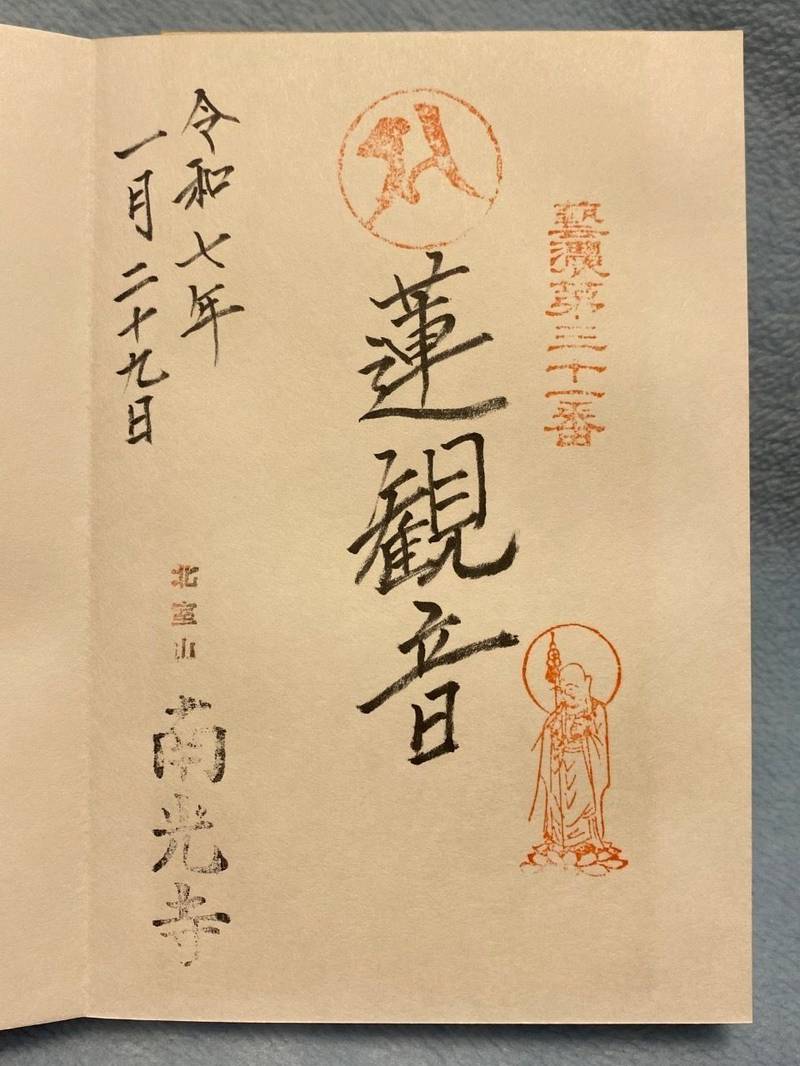 藝濃第三十一番
蓮観音
令和七年
一月二十九日
北室山
南光寺